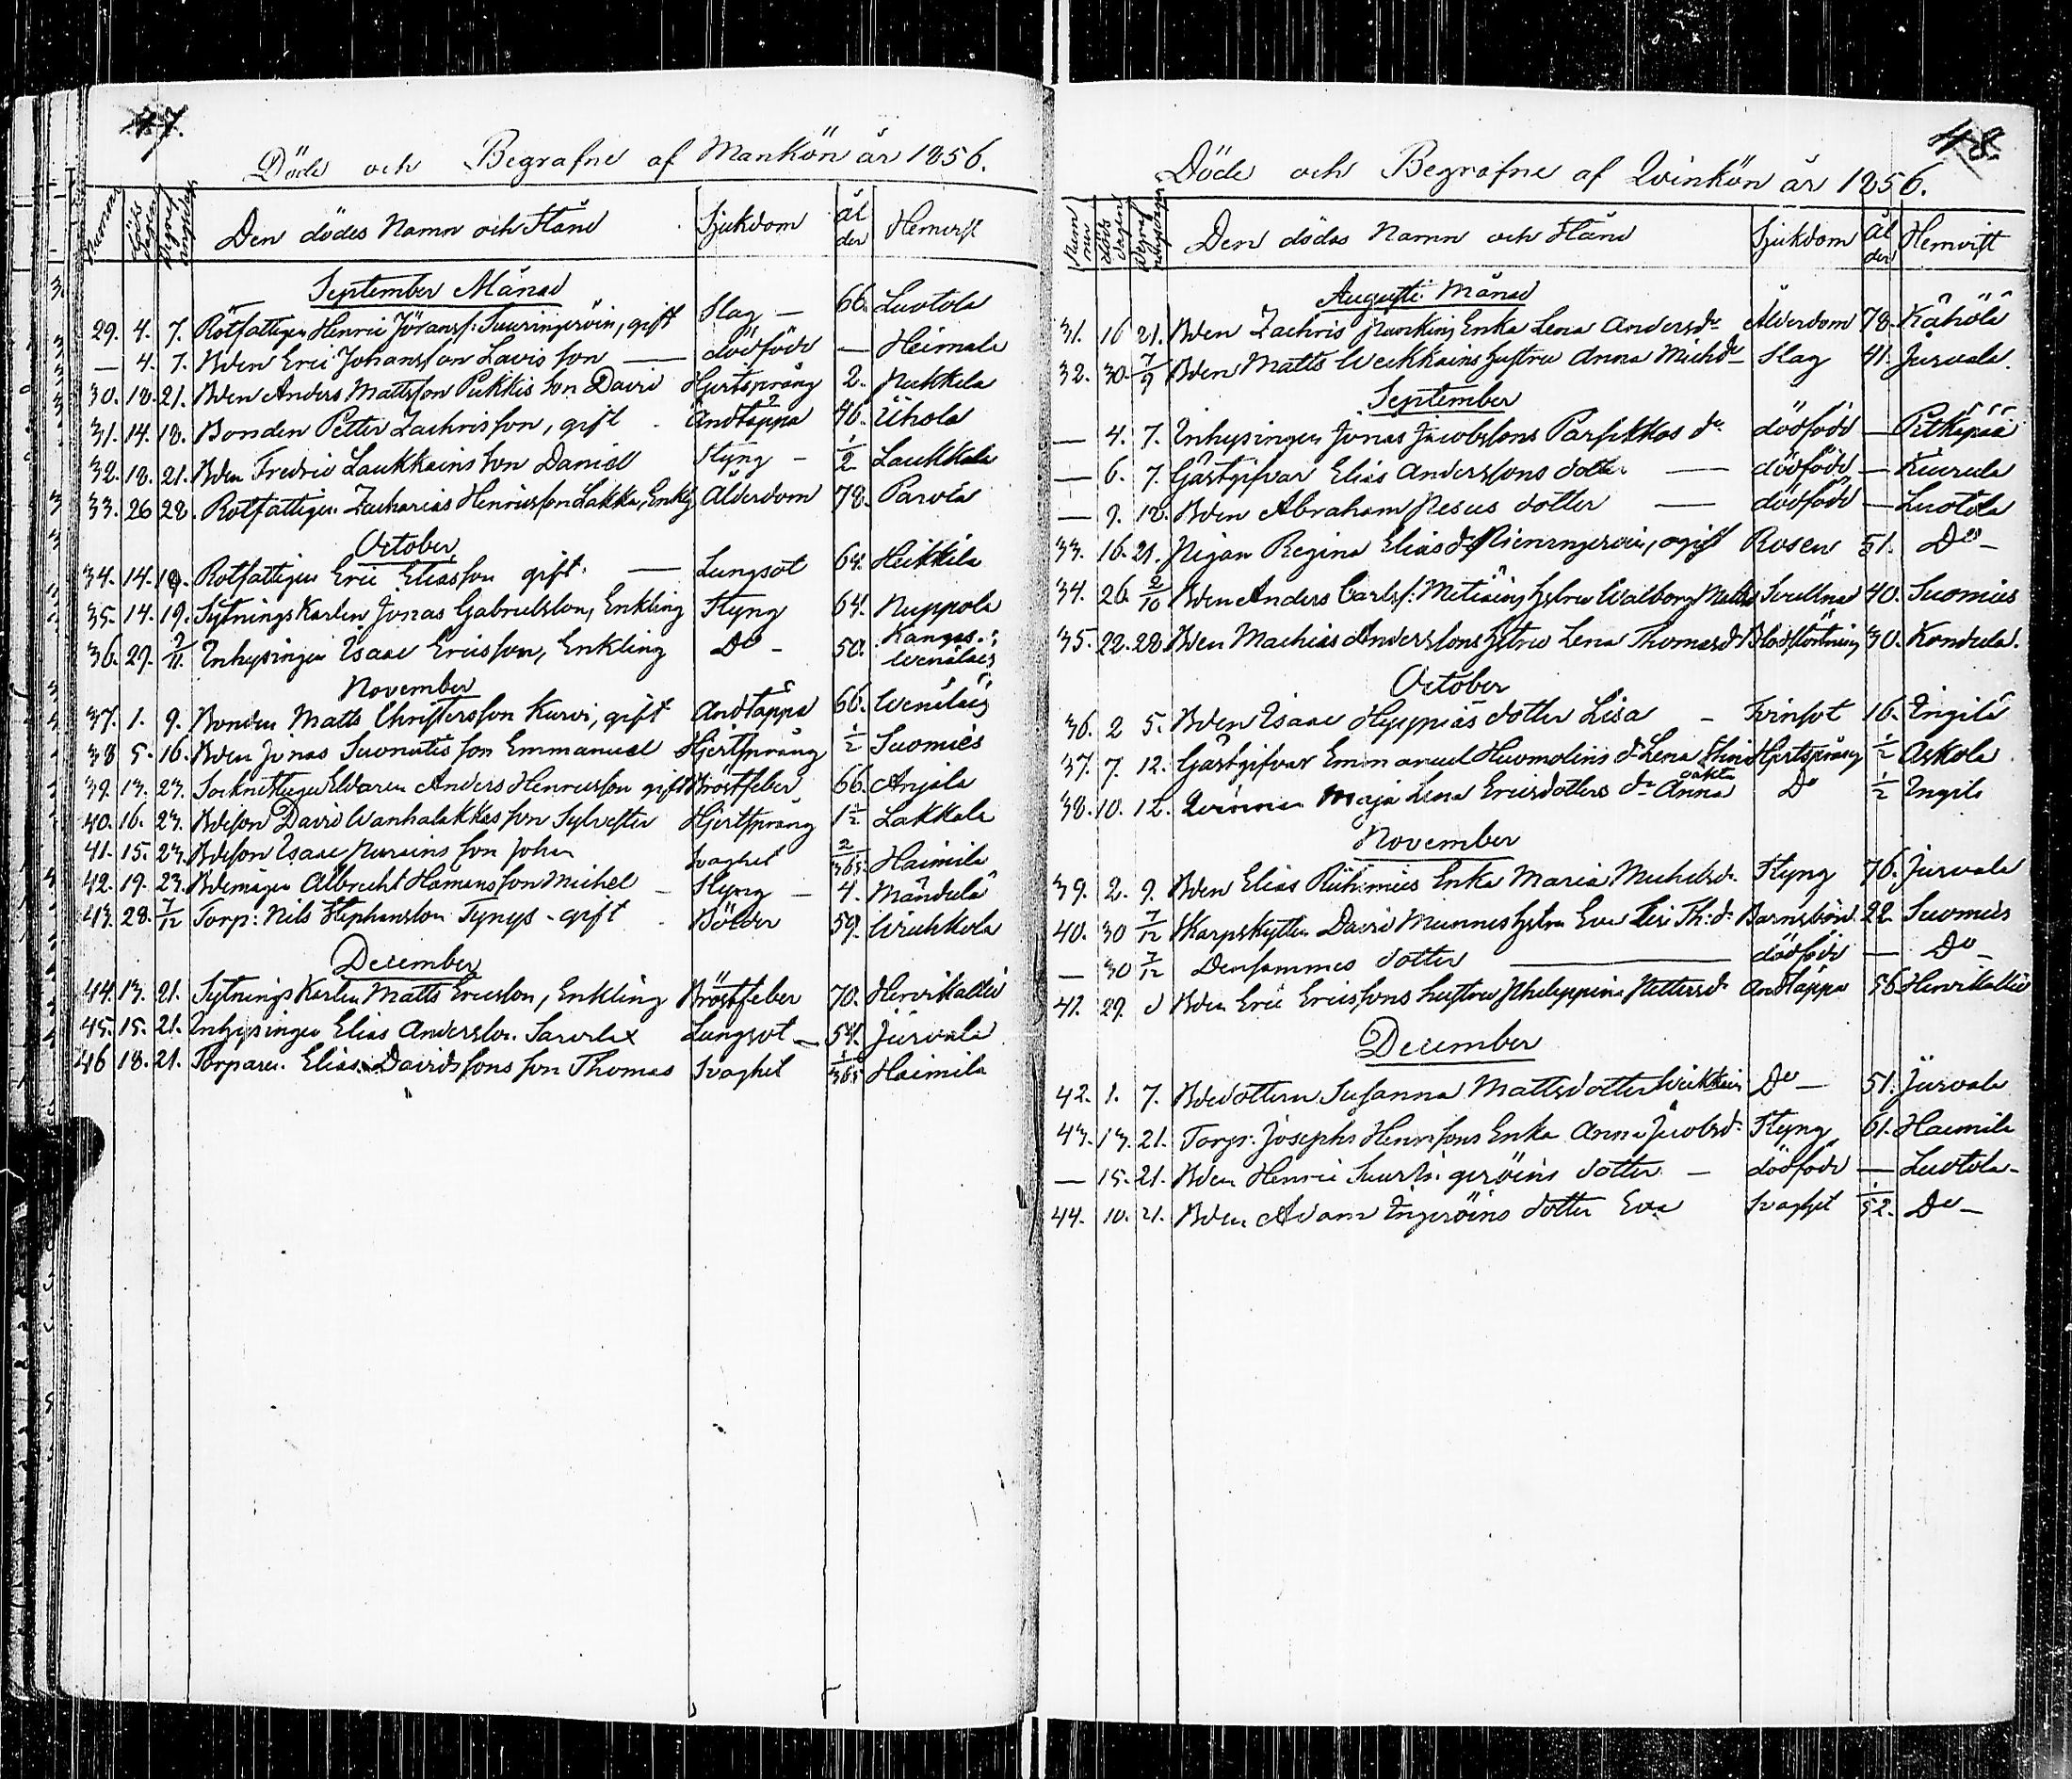 47.
Döde och Begrafne af Mankön år 1856.
Nummer Död's dagen Begraf-ningsdagen Den dödes Namn och Stånd Sjukdom Ål der Hemvist
September Månad
29. 4. 7. Rotfattigen Henric Jöranss: Suuringeröin, gift Slag — 66. Luotola
— 4. 7. Bden Eric Johansson Lavis son — dödfödd — Heimala
30. 18. 21. Bden Anders Mattsson Pukkis son David Hjertsprång 2. Pukkila
31. 14. 18. Bonden Petter Zachrisson, gift Andtäppa 46. Uhola
32. 18. 21. Bden Fredric Laukkains son Daniel Styng — 1/2 Laukkala
33. 26 28. Rotfattigen Zacharias Henricsson Lakka, Enkl: Ålderdom 78. Parola
October
34. 14. 19. Rotfattigen Eric Eliasson gift. — Lungsot 64. Heikkila
35. 14. 19. Sytnings Karlen Jonas Gabrielsson, Enkling Styng 64. Nuppola
36. 29. 2/11. Inhysingen Isaac Ericsson, Enkling Do - 50. Kangas-
Wenäläis
November
37. 1. 9. Bonden Matts Christersson Kurvi, gift Andtäppa 66. Wenäläis
38 5. 16. Bden Jonas Suonutis son Emmanuel Hjertsprång 1/2 Suomies
39. 13. 23. Anders Henricsson gift Bröstfeber 66. Anjala
40. 16. 23. Bdeson David Wanhalakkas son Sylvester Hjertsprång 1 1/2 Lakkala
41. 15. 23. Bdeson Isaac son Johan Svaghet 2/365 Haimila
42. 19. 23. Bdemågen Albrecht Hämäns son Michel — Styng — 4. Mändulä
43. 28. 7/12 Torp: Nils Stephansson Tynys - gift Bölder 59. Wiuhkola
December
44. 13. 21. Sytnings Karlen Matts Ericsson, Enkling Bröstfeber 70. Hervikallio
45. 15. 21. Inhysingen Elias Andersson Savolax Lungsot — 54. Jurvala
46 18. 21. Torparen Elias Davidssons son Thomas Svaghet 1/365 Haimila
48.
Döde och Begrafne af Qvinkön år 1856.
Num mer Döds dagen Begraf ningsdagen Den dödas Namn och Stånd Sjukdom Ål der Hemvist
Augusti Månad
31. 16 21. Bden Zachris Enka Lena Andersdr Ålderdom 78. Kähölä
32. 30. 7/9 Bden Matts Weckkains hustru Anna Michdr Slag 41. Jurvala.
September
— 4. 7. Inhysingen Jonas Jacobssons Parsikkas dr dödfödd — Pitkäpää
— 6. 7. Gästgifvar Elias Anderssons dotter — dödfödd — Kiurula
— 9. 18. Bden Abraham Pesus dotter — dödfödd — Luotola
33. 16. 21. Pigan Regina Eliasdr ogift Rosen 51. Do —
34. 26. 2/10 Bden Anders Carlss: Metiäins hstru Walborg Mattsd Svullnad 40. Suomies
35. 22. 28 Bden Mathias Anderssons hstru Lena Thomasdr Blodstörtning 30. Kondula.
October
36. 2 5. Bden Isaac Hyypiäs dotter Lisa — Tvinsot 16. Ingilä
37. 7. 12. Gästgifvar Emmanuel Huomolins dr Lena Stina Hjertsprång 1/2 Askola
38. 10. 12. Qvinnan Maja Lena Ericsdotters dr oäkta Anna Do 1/2 Ingilä
November
39. 2. 9. Bden Elias Riihimies Enka Maria Michelsdr Styng 76. Jurvala
40. 30 7/12 Skarpskytten David Munnes hstru Eva Lisa Th: dr Barnsbörd 22 Suomies
— 30 7/12 Densammes dotter — dödfödd — Do —
41. 29. d Bden Eric Ericssons hustru Philippina Pettersdr Andtäppa 56 Hervikallio
December
42. 1. 7. Bdedottern Susanna Mattsdotter Do — 51. Jurvala
43. 13. 21. Torp: Josephs Henrssons Enka Anna Jacobsdr Styng 61. Haimila
— 15. 21. Bden Henric Suuringeröins dotter — dödfödd — Luotola -
44. 10. 21. Bden Adam Ingeröins dotter Eva Svaghet 1/52. Do —